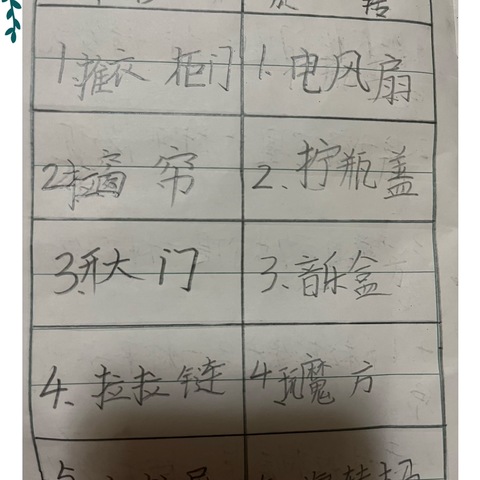 旋 转
1.推衣柜门 1.电风扇
2.拉窗帘 2.拧瓶盖
3.开大门 3.音乐盒
4.拉拉链 4.玩魔方
5.